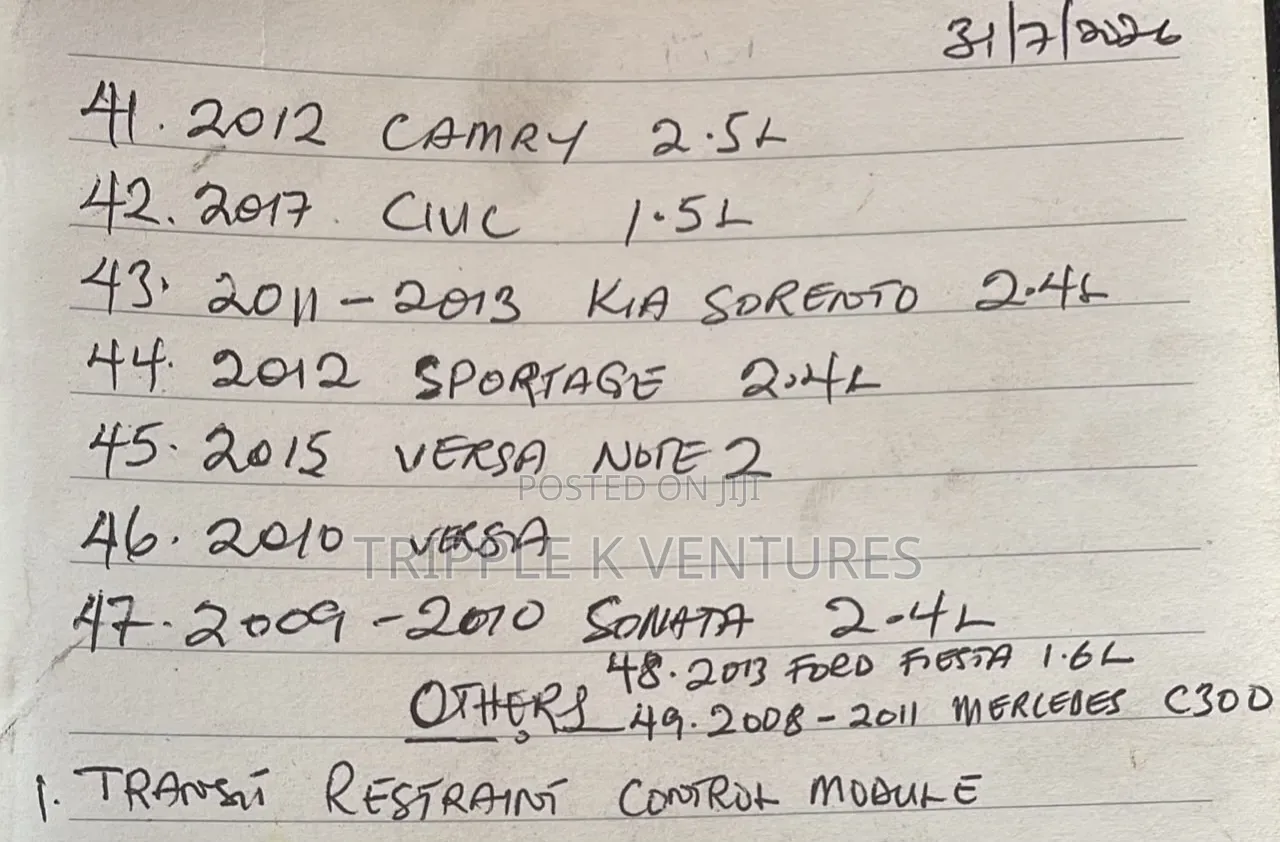 31/7/2026
41. 2012 CAMRY 2.5L
42. 2017 CIVIC 1.5L
43. 2011-2013 KIA SORENTO 2.4L
44. 2012 SPORTAGE 2.4L
45. 2015 VERSA NOTE 2
POSTED ON JIJI
46. 2010 VERSA
TRIPPLE K VENTURES
47. 2009-2010 SONATA 2.4L
48. 2013 FORD FIESTA 1.6L
OTHERS 49. 2008-2011 MERCEDES C300
1. TRANSIT RESTRAINT CONTROL MODULE